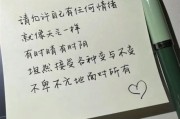 请允许自己有任何情绪
就像天气一样
有时晴有时阴
坦然接受各种变与不变
不卑不亢地面对所有